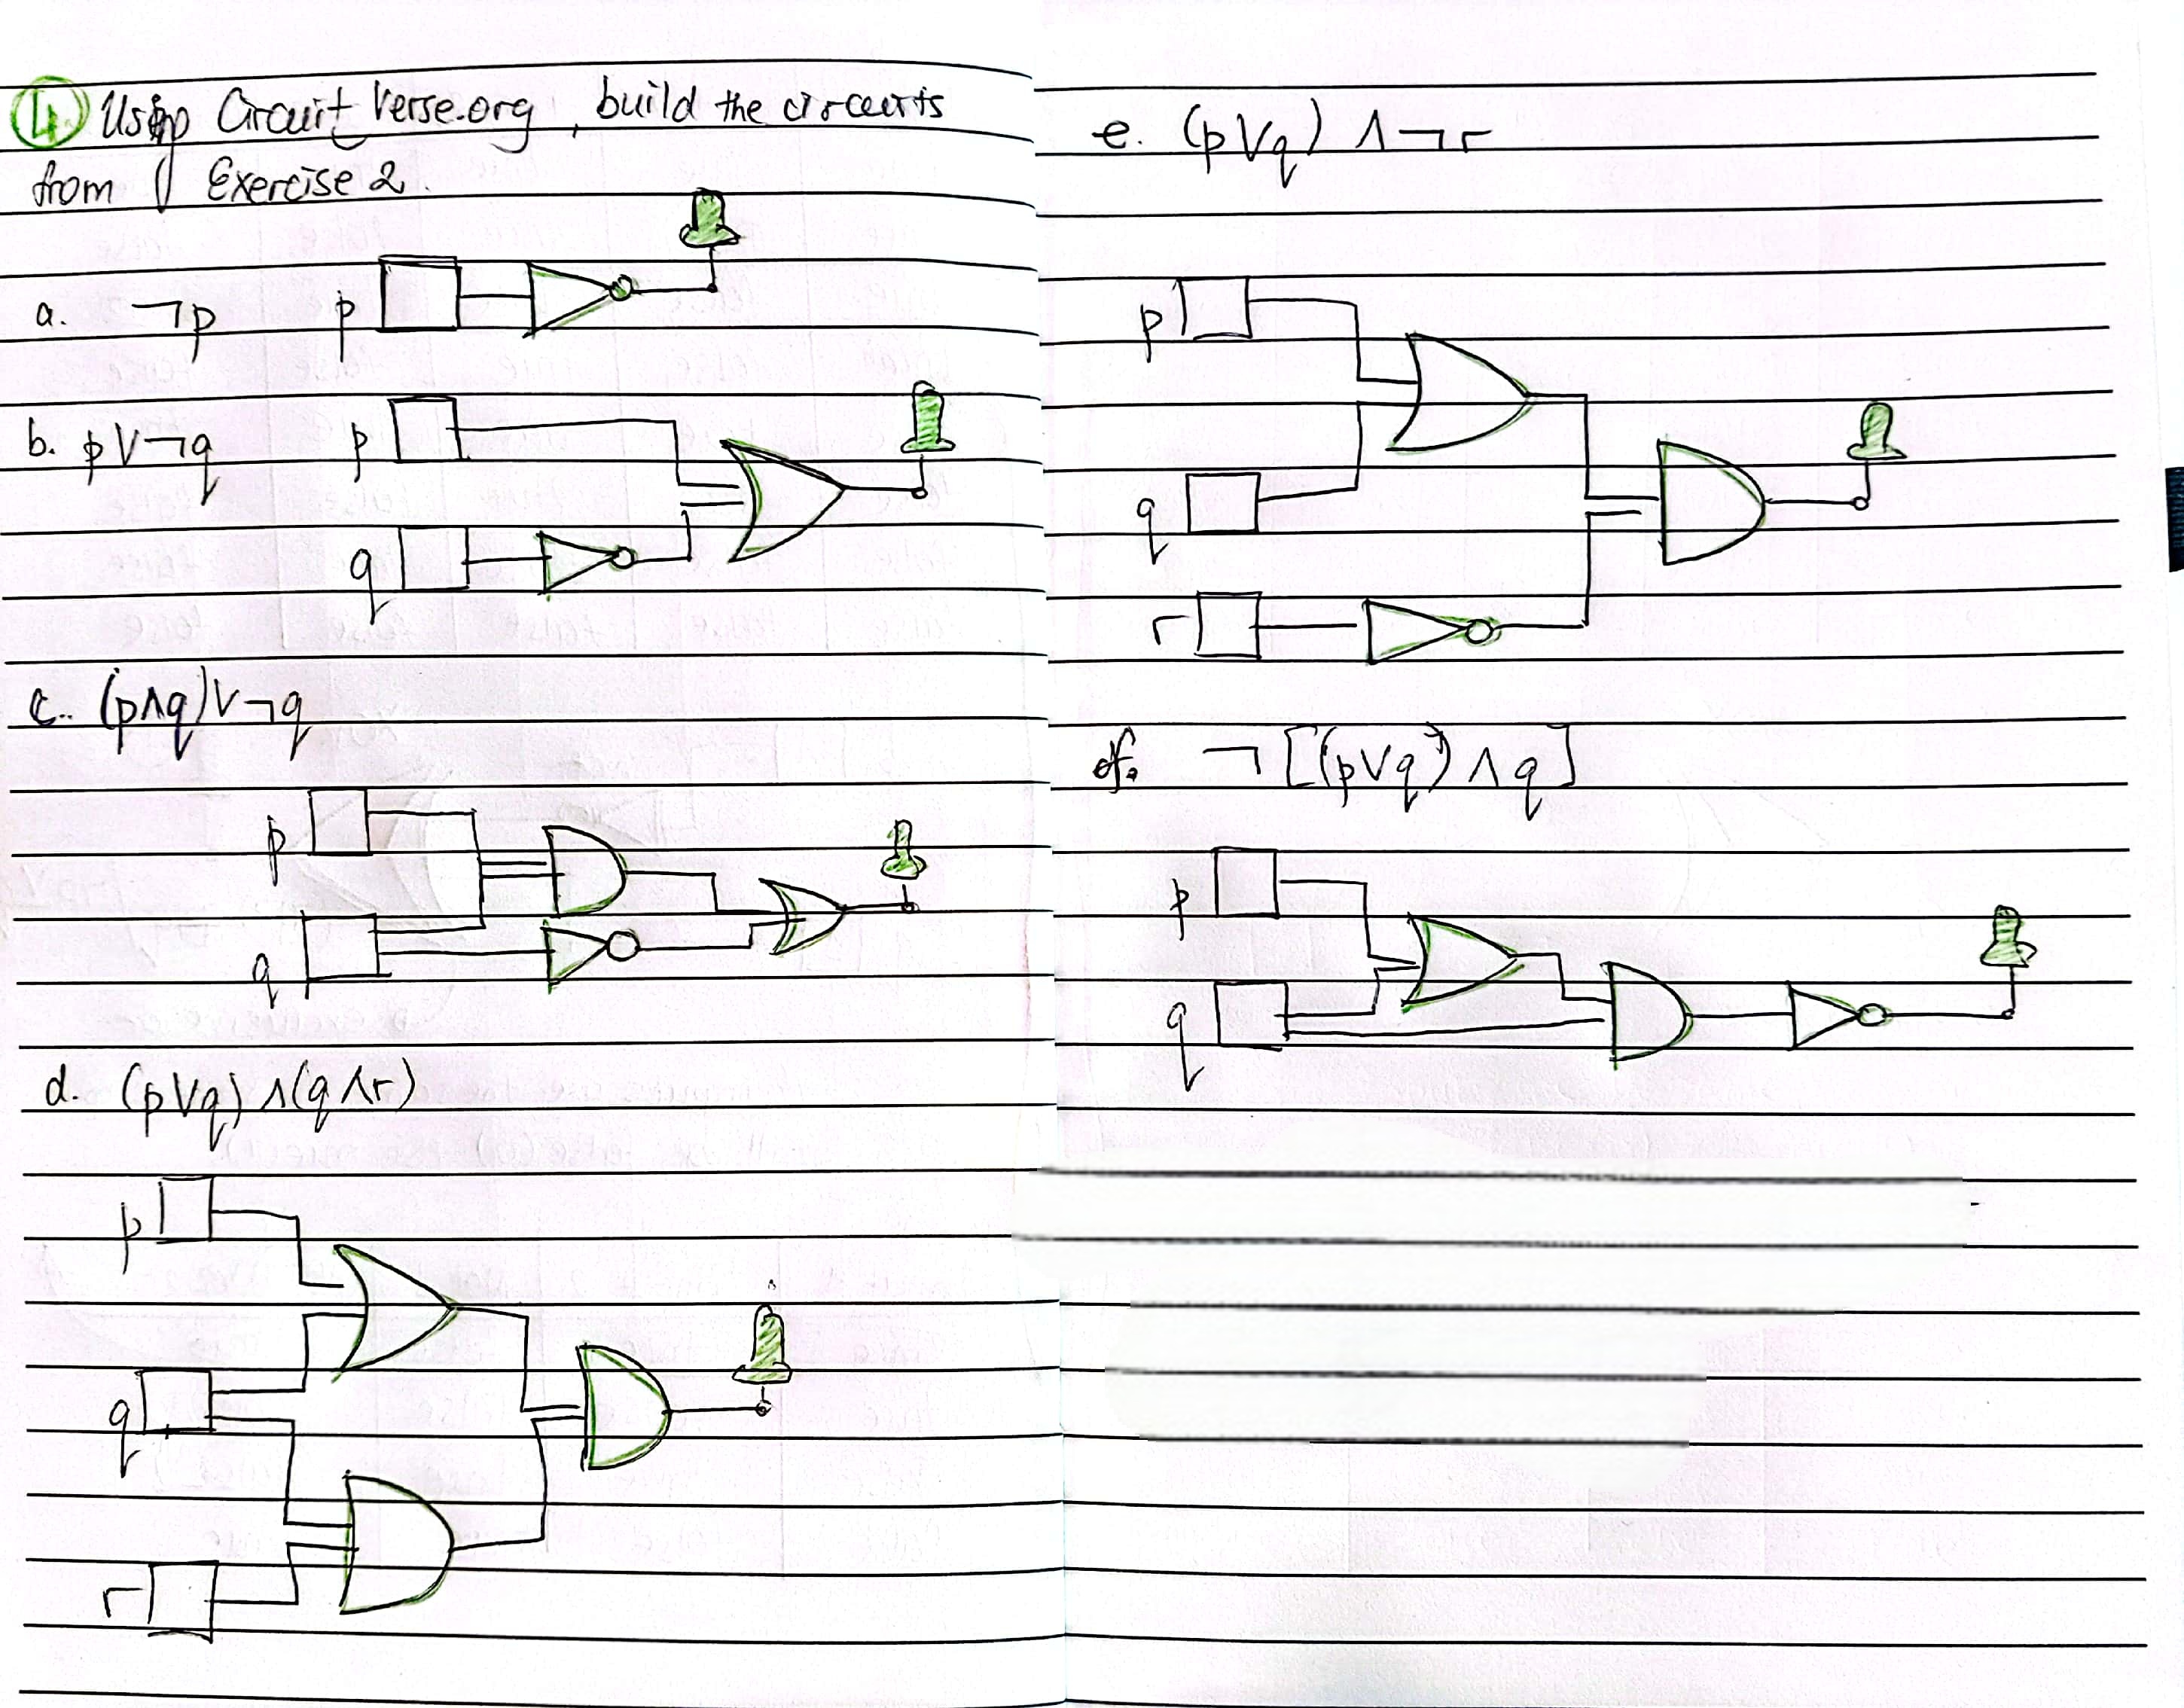 4. Using Circuit Verse.org, build the circuits
from Exercise 2.
a. ¬p p
b. p∨¬q p
q
c. (p∧q)∨¬q
p
q
d. (p∨q)∧(q∧r)
p
q
r
e. (p∨q)∧¬r
p
q
r
f. ¬[(p∨q)∧q]
p
q